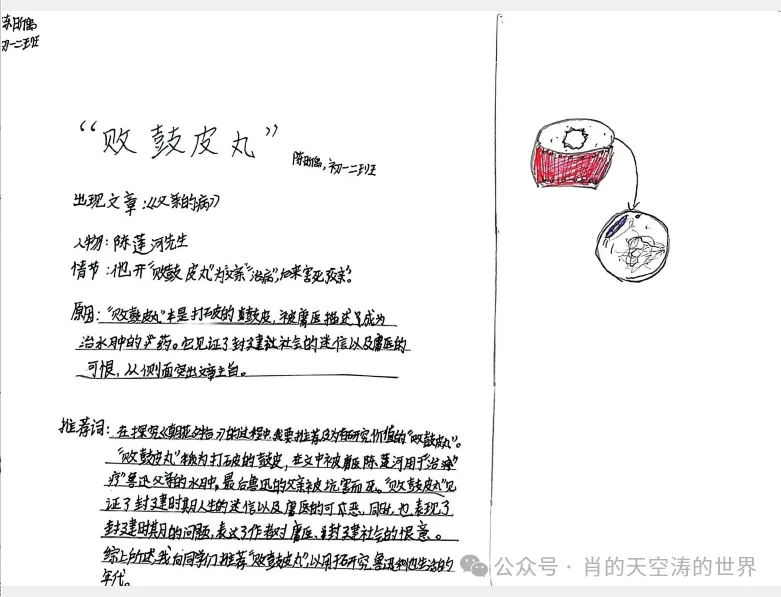 初一二班
“败鼓皮丸”
初一二班
出现文章:《父亲的病》
人物:陈莲河先生
情节:他开“败鼓皮丸”为父亲“治病”,后来害死父亲。
原因:“败鼓皮丸”本是打破的鼓皮,被庸医描述成为
治水肿的妙药。它见证了封建社会的迷信以及庸医的
可恨,从侧面突出文章主旨。
推荐词:在探究《朝花夕拾》的过程中,我要推荐极为有研究价值的“败鼓皮丸”。
“败鼓皮丸”极为打破的鼓皮,在文中被庸医陈莲河用于“治
疗”鲁迅父亲的水肿,最后鲁迅的父亲被坑害而死。“败鼓皮丸”见
证了封建时期人生的迷信以及庸医的可恶。同时,也表现了
封建时期的问题,表达了作者对庸医、封建社会的恨意。
综上所述,我向同学们推荐“败鼓皮丸”,以用于研究鲁迅和他生活的
年代。
公众号·肖的天空涛的世界